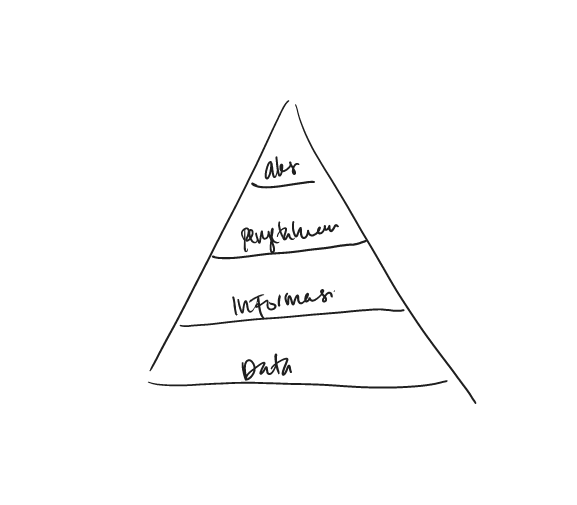 pengetahuan
Informasi
Data